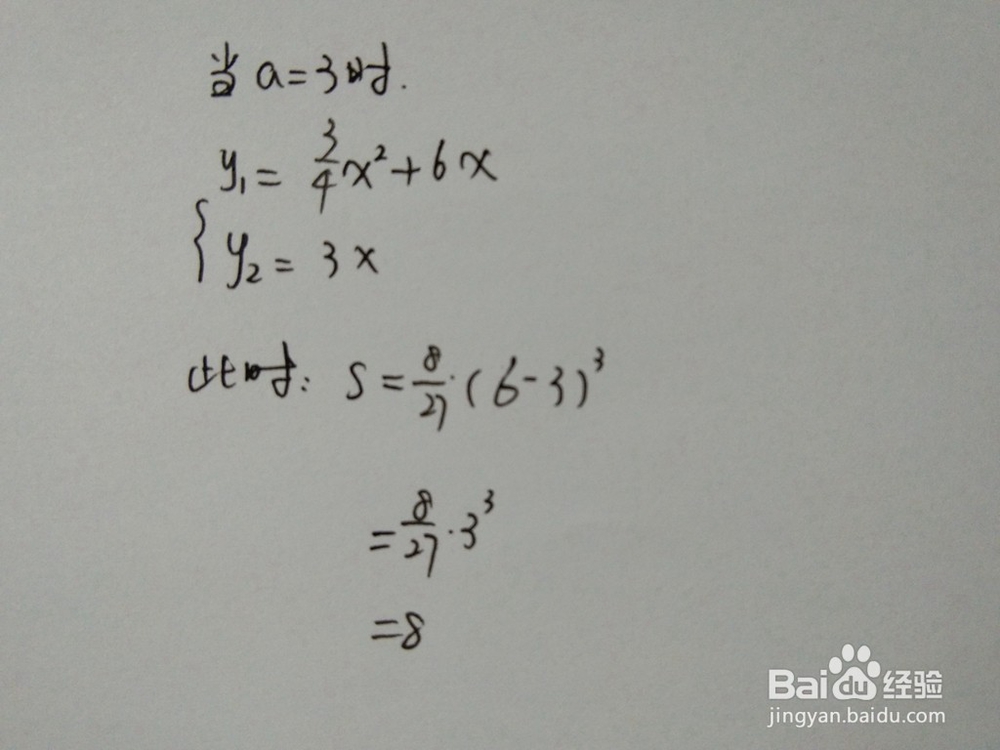 当 a=3时.
y₁ = 3/4 x² + 6x
{ y₂ = 3x
此时: S = 8/27 · (6-3)³
= 8/27 · 3³
= 8
Baidu 经验
jingyan.baidu.com